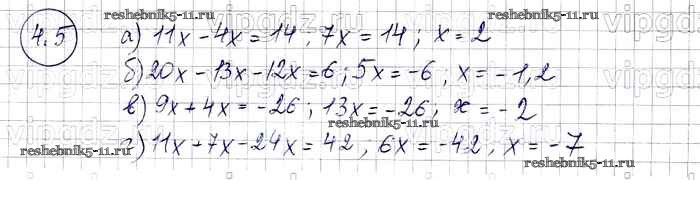 4.5
reshebnik5-11.ru
а) 11x - 4x = 14, 7x = 14; x = 2
б) 20x - 13x - 12x = 6; 5x = -6, x = -1,2
в) 9x + 4x = -26; 13x = -26, x = -2
reshebnik5-11.ru
г) 11x + 7x - 24x = 42; 6x = -42, x = -7
reshebnik5-11.ru reshebnik5-11.ru